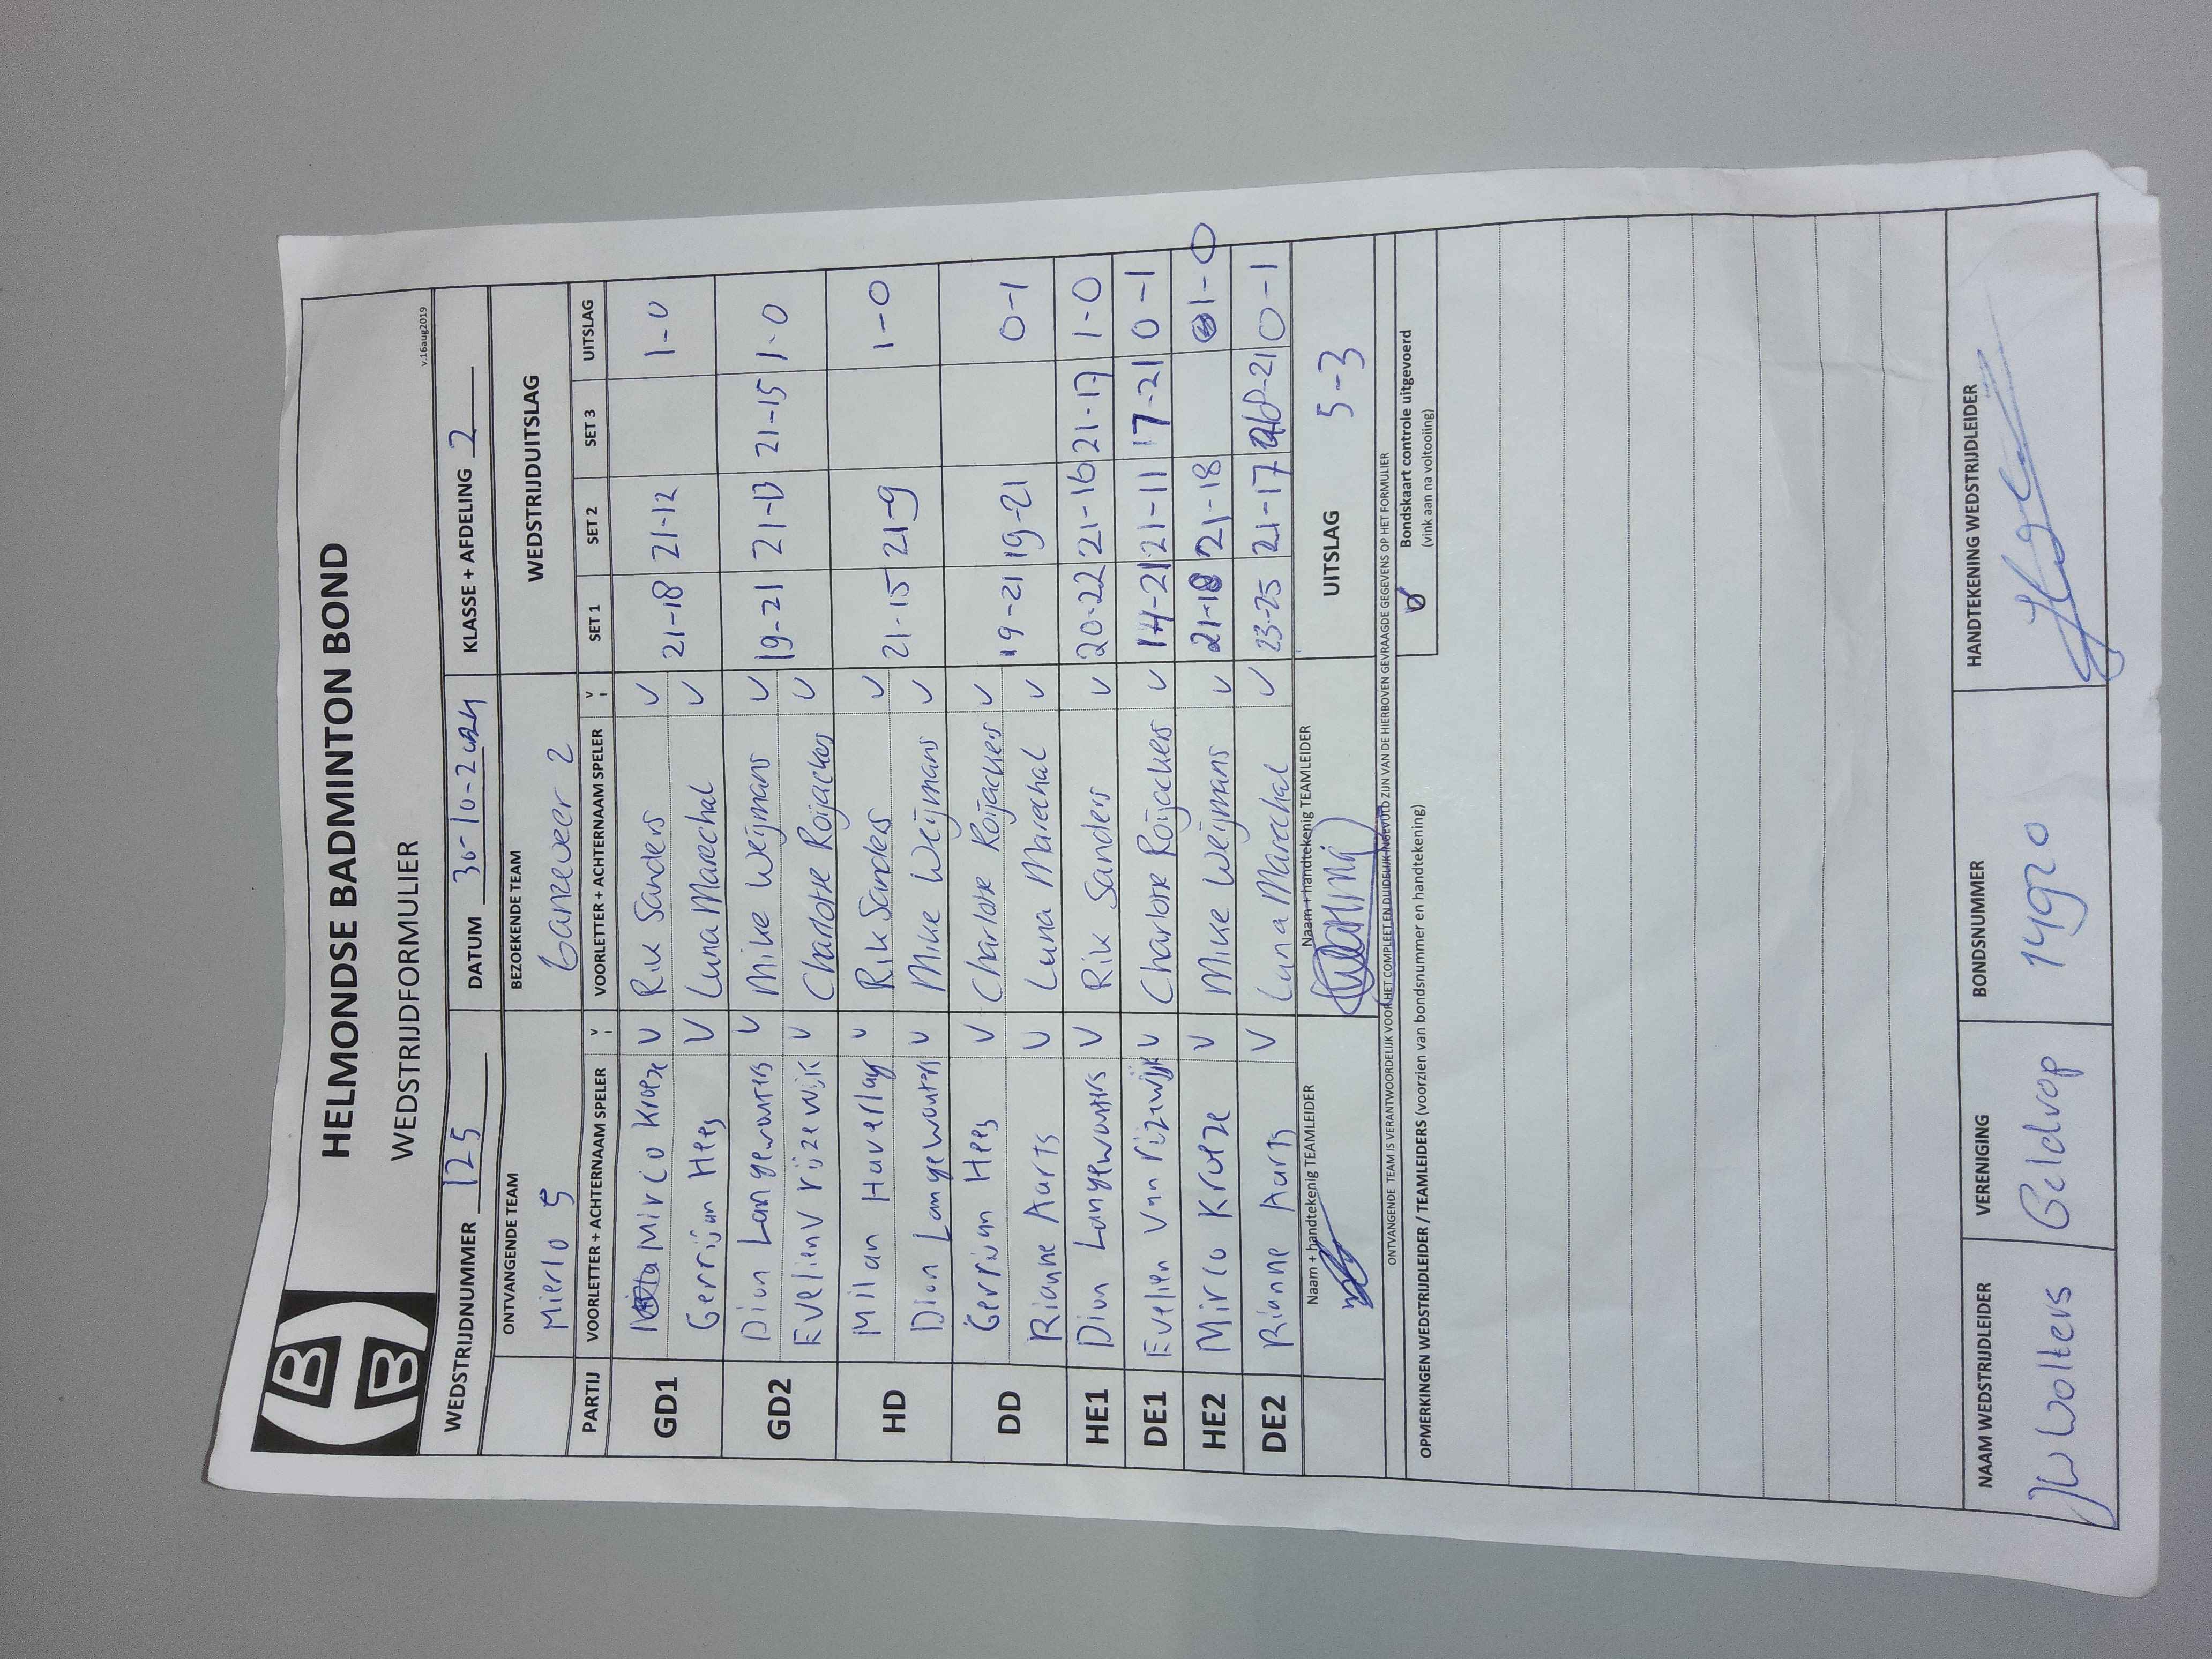 HELMONDSE BADMINTON BOND
WEDSTRIJDFORMULIER
v.16aug2019
WEDSTRIJDNUMMER 125 DATUM 30-10-2024 KLASSE + AFDELING 2
ONTVANGENDE TEAM BEZOEKENDE TEAM WEDSTRIJDUITSLAG
Mierlo 5 Ganzeveer 2
PARTIJ VOORLETTER + ACHTERNAAM SPELER V VOORLETTER + ACHTERNAAM SPELER V SET 1 SET 2 SET 3 UITSLAG
GD1 Mirco Kroeze V Rik Sanders V 21-18 21-12 1-0
Gerrijan Hees V Luna Marechal V
GD2 Dion Langewouters V Mike Weijmans V 19-21 21-13 21-15 1-0
Evelien V rijzewijk V Charlotte Roijackers V
HD Milan Haverlag V Rik Sanders V 21-15 21-9 1-0
Dion Langewouters V Mike Weijmans V
DD Gerrijan Hees V Charlotte Roijackers V 19-21 19-21 0-1
Rianne Aarts V Luna Marechal V
HE1 Dion Langewouters V Rik Sanders V 20-22 21-16 21-17 1-0
DE1 Evelien Van rijzewijk V Charlotte Roijackers V 14-21 21-11 17-21 0-1
HE2 Mirco Kroeze V Mike Weijmans V 21-18 21-18 1-0
DE2 Rianne Aarts V Luna Marechal V 23-25 21-17 -21 0-1
Naam + handtekenig TEAMLEIDER Naam + handtekenig TEAMLEIDER UITSLAG 5-3
ONTVANGENDE TEAM IS VERANTWOORDELIJK VOOR HET COMPLEET EN DUIDELIJK INGEVULD ZIJN VAN DE HIERBOVEN GEVRAAGDE GEGEVENS OP HET FORMULIER
OPMERKINGEN WEDSTRIJDLEIDER / TEAMLEIDERS (voorzien van bondsnummer en handtekening)
Bondskaart controle uitgevoerd
(vink aan na voltooiing)
NAAM WEDSTRIJDLEIDER VERENIGING BONDSNUMMER HANDTEKENING WEDSTRIJDLEIDER
JW Wolters Geldrop 14920